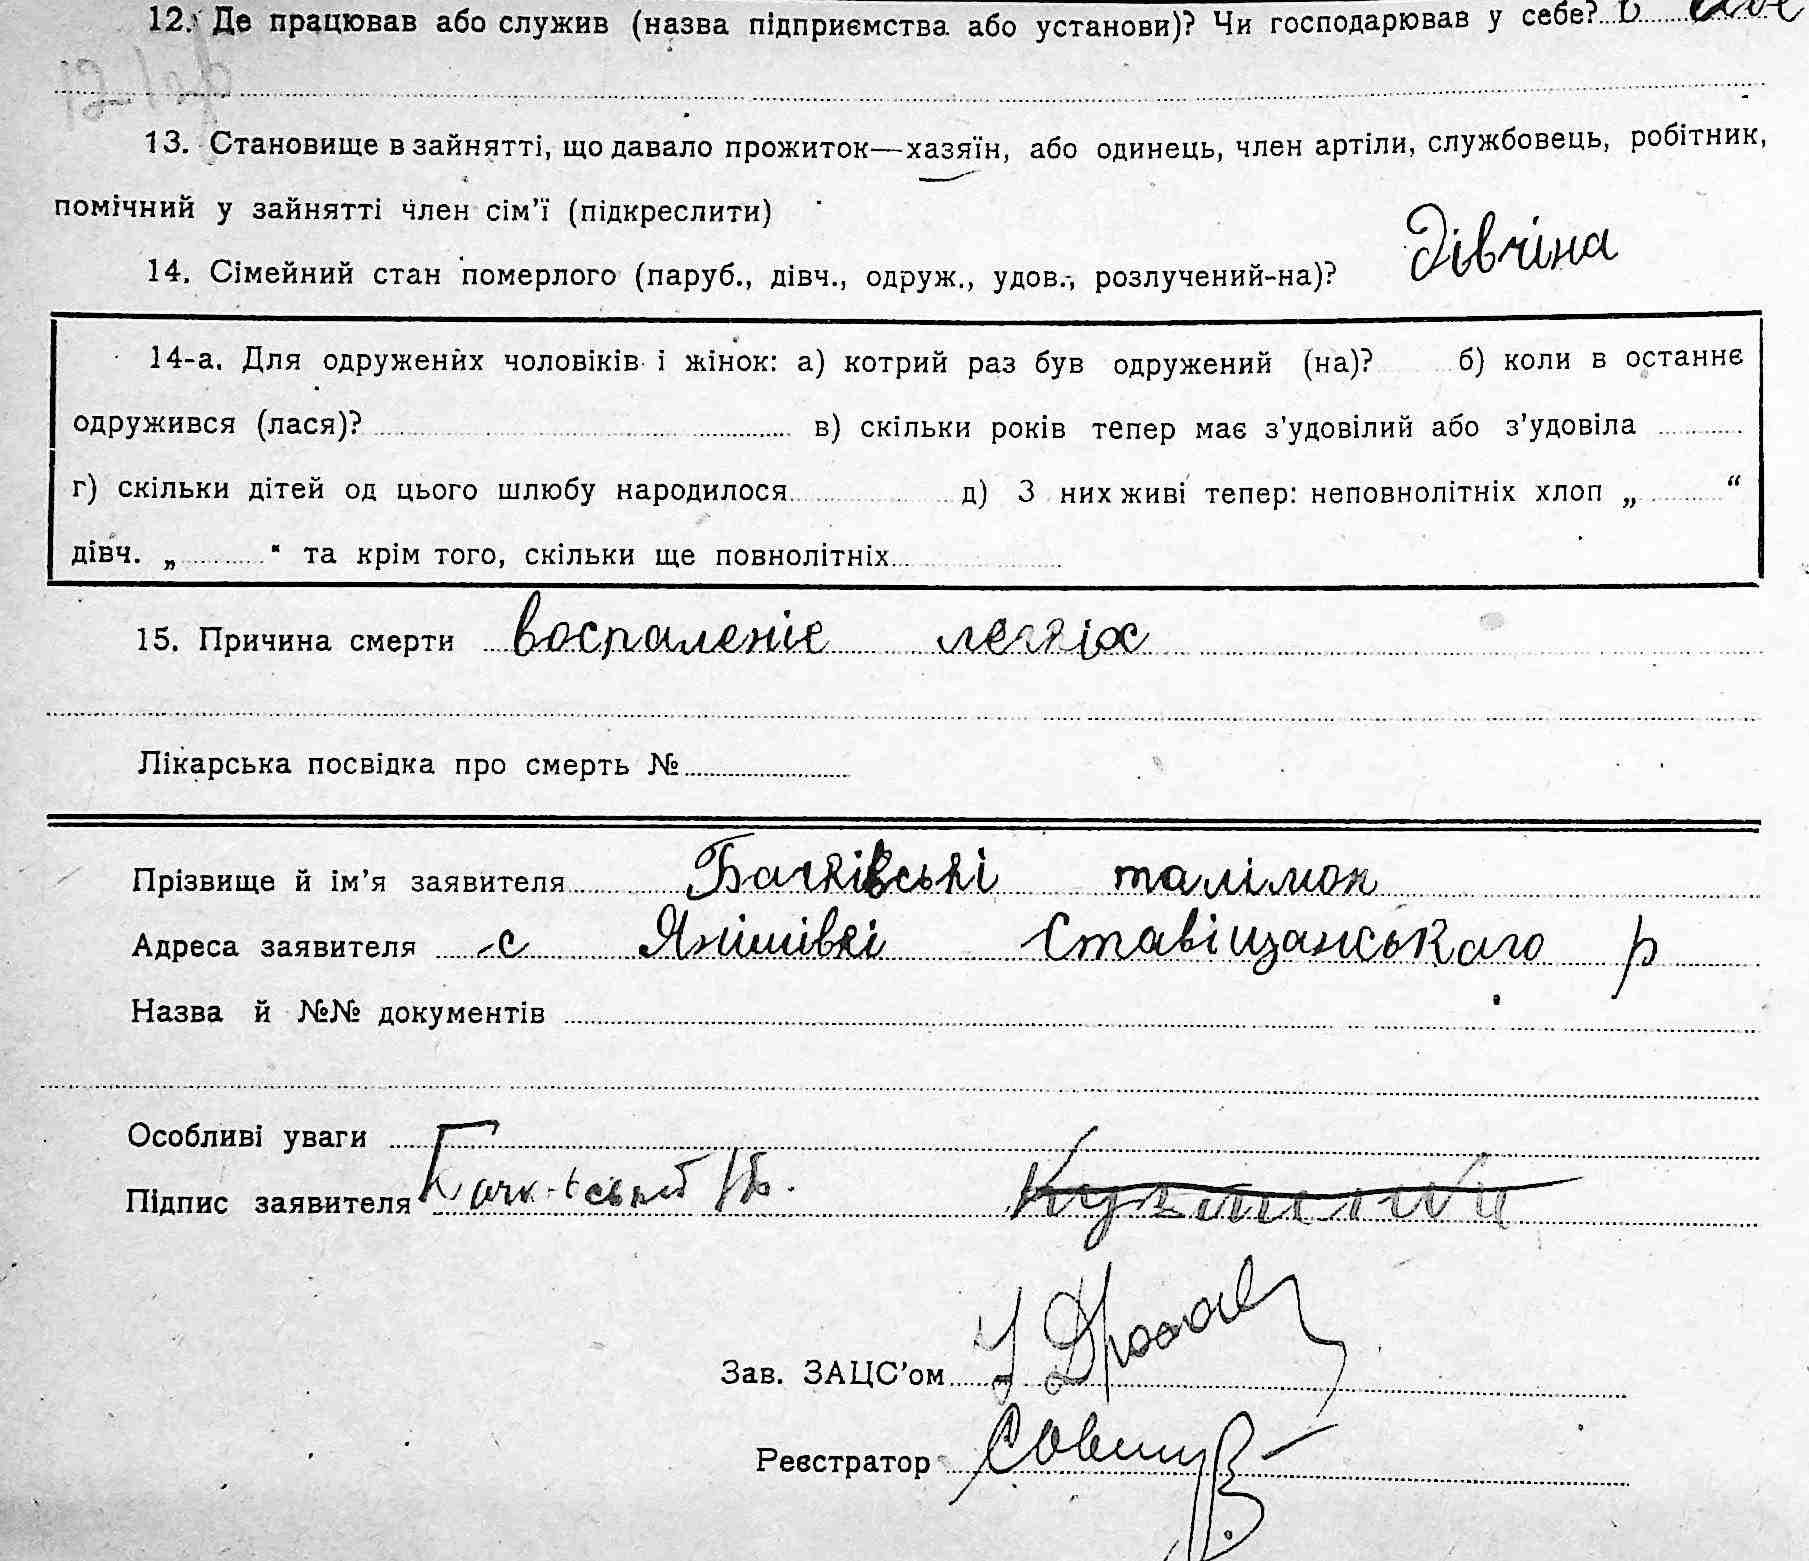 12. Де працював або служив (назва підприємства або установи)? Чи господарював у себе?
13. Становище в зайнятті, що давало прожиток—хазяїн, або одинець, член артіли, службовець, робітник,
помічний у зайнятті член сім'ї (підкреслити)
14. Сімейний стан померлого (паруб., дівч., одруж., удов., розлучений-на)? Дівчіна
14-а. Для одружених чоловіків і жінок: а) котрий раз був одружений (на)? б) коли в останнє
одружився (лася)? в) скільки років тепер має з'удовілий або з'удовіла
г) скільки дітей од цього шлюбу народилося д) З них живі тепер: неповнолітніх хлоп „ “
дівч. „ “ та крім того, скільки ще повнолітніх
15. Причина смерти воспаленіе легкіх
Лікарська посвідка про смерть №
Прізвище й ім'я заявителя Бачківські талімон
Адреса заявителя с Янішівкі Ставіщанськаго р
Назва й №№ документів
Особливі уваги
Підпис заявителя
Зав. ЗАЦС'ом
Реєстратор